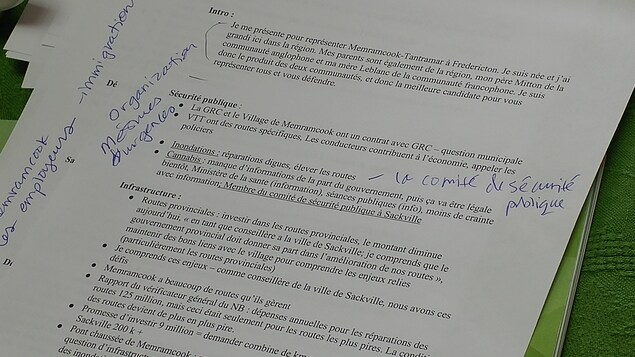 Intro :
Je me présente pour représenter Memramcook-Tantramar à Fredericton. Je suis née et j'ai
grandi ici dans la région. Mes parents sont également de la région, mon père Mitton de la
communauté anglophone et ma mère Leblanc de la communauté francophone. Je suis
donc le produit des deux communautés, et donc la meilleure candidate pour vous
représenter tous et vous défendre.
immigration
Organization
Mesures
d'urgences
emramcook
les employeurs
Dé
Sécurité publique :
• La GRC et le Village de Memramcook ont un contrat avec GRC – question municipale
• VTT ont des routes spécifiques. Les conducteurs contribuent à l'économie, appeler les
policiers
• Inondations : réparations digues, élever les routes
• Cannabis : manque d'informations de la part du gouvernement, puis ça va être légale
bientôt, Ministère de la santé (information), séances publiques (info), moins de crainte
avec information; Membre du comité de sécurité publique à Sackville
– la comité de sécurité
publique
Sa
Infrastructure :
• Routes provinciales : investir dans les routes provinciales, le montant diminue
aujourd'hui, « en tant que conseillère a la ville de Sackville; je comprends que le
gouvernement provincial doit donner sa part dans l'amélioration de nos routes »,
maintenir des bons liens avec le village pour comprendre les enjeux relies
(particulièrement les routes provinciales)
• Je comprends ces enjeux – comme conseillère de la ville de Sackville, nous avons ces
défis
• Memramcook a beaucoup de routes qu'ils gèrent
• Rapport du vérificateur général du NB : dépenses annuelles pour les réparations des
routes 125 million, mais ceci était seulement pour les routes les plus pires. La conditi
des routes devient de plus en plus pire.
• Promesse d'investir 9 million = demander combine de km
Sackville 200 k +
• Pont chaussée de Memramcook
question d'infrastructure
des inondat